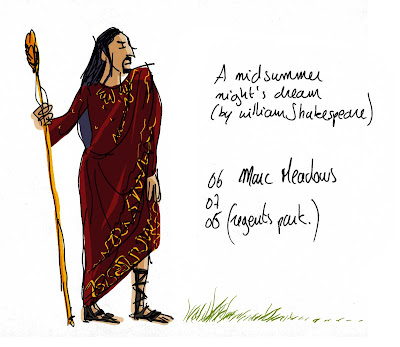 A midsummer
night's dream
(by william Shakespeare)
06 Marc Meadows
07
05 (regents park.)